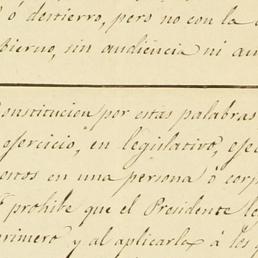 ó destierro, pero no con la
bierno, sin audiencia ni au
Constitucion por estas palabras
ejercicio, en legislativo, eje
entos en una persona ó corp
prohibe que el Presidente le
primero y al aplicarla á los